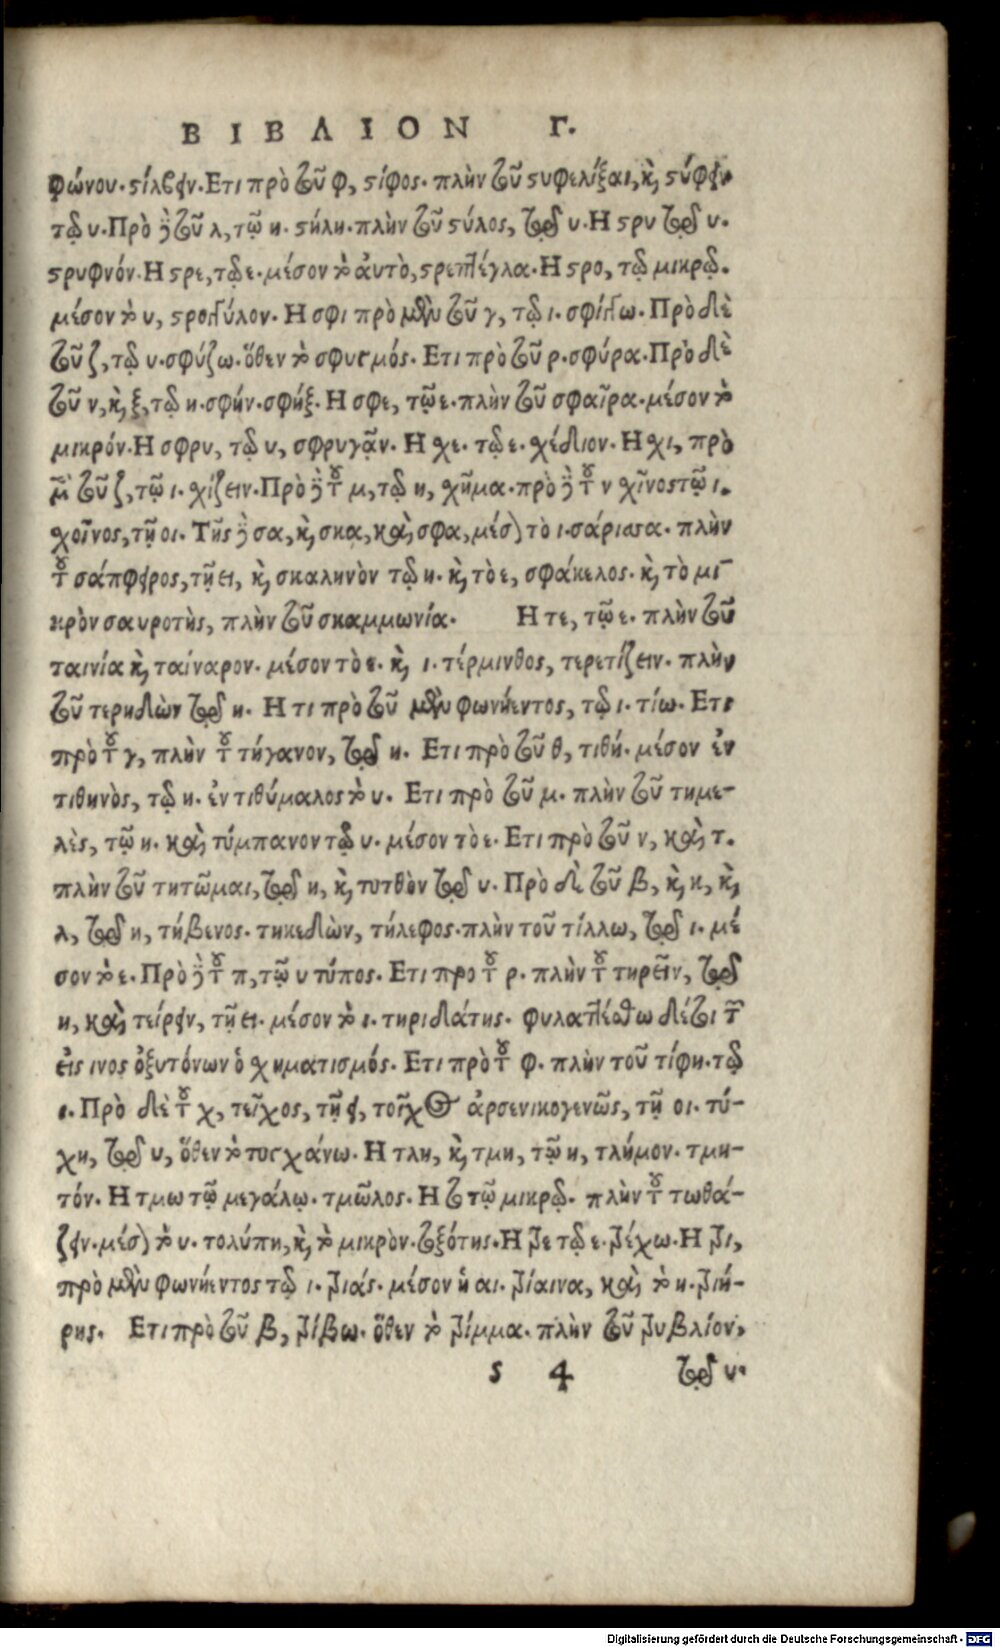 ΒΙΒΛΙΟΝ Γ.
φώνου. στίλβειν. Ετι πρὸ τοῦ φ, στίφος. πλὴν τοῦ στυφελίξαι, καὶ στύφειν
τῷ υ. Πρὸ δὲ τοῦ λ, τῷ η. στήλη. πλὴν τοῦ στύλος, τῷ υ. Η στρυ τῷ υ.
στρυφνόν. Η στρε, τῷ ε. μέσον τὸ αὐτὸ, στρεπταίγλα. Η στρο, τῷ μικρῷ.
μέσον τὸ υ, στρογγύλον. Η σφι πρὸ μὲν τοῦ γ, τῷ ι. σφίγγω. Πρὸ δὲ
τοῦ ζ, τῷ υ. σφύζω. ὅθεν τὸ σφυγμός. Ετι πρὸ τοῦ ρ. σφύρα. Πρὸ δὲ
τοῦ ν, καὶ, ξ, τῷ η. σφήν. σφήξ. Η σφε, τῷ ε. πλὴν τοῦ σφαῖρα. μέσον τὸ
μικρόν. Η σφρυ, τῷ υ, σφρυγᾷν. Η σχε. τῷ ε. σχέδιον. Η σχι, πρὸ
μὲν τοῦ ζ, τῷ ι. σχίζειν. Πρὸ δὲ τοῦ μ, τῷ η, σχῆμα. πρὸ δὲ τοῦ ν σχῖνος τῷ ι.
σχοῖνος, τῇ οι. Τῆς δὲ σα, καὶ σκα, καὶ σφα, μέσον τὸ ι. σάρισσα. πλὴν
τοῦ σάπφειρος, τῇ ει, καὶ σκαληνὸν τῷ η. καὶ τὸ ε, σφάκελος. καὶ τὸ μι
κρὸν σαυροτὴς, πλὴν τοῦ σκαμμωνία. Η τε, τῷ ε. πλὴν τοῦ
ταινία καὶ ταίναρον. μέσον τὸ ε. καὶ ι. τέρμινθος, τερετίζειν. πλὴν
τοῦ τερηδὼν τῷ η. Η τι πρὸ τοῦ μὲν φωνήεντος, τῷ ι. τίω. Ετι
πρὸ τοῦ γ, πλὴν τοῦ τήγανον, τῷ η. Ετι πρὸ τοῦ θ, τιθή. μέσον ἐν
τιθηνὸς, τῷ η. ἐν τιθύμαλος τὸ υ. Ετι πρὸ τοῦ μ. πλὴν τοῦ τημε-
λὲς, τῷ η. καὶ τύμπανον τῷ υ. μέσον τὸ ε. Ετι πρὸ τοῦ ν, καὶ τ.
πλὴν τοῦ τητῶμαι, τῷ η, καὶ τυτθὸν τῷ υ. Πρὸ δὲ τοῦ β, καὶ κ, καὶ
λ, τῷ η, τήβενος. τηκεδὼν, τήλεφος. πλὴν τοῦ τίλλω, τῷ ι. μέ
σον τὸ ε. Πρὸ δὲ τοῦ π, τῷ υ τύπος. Ετι προ τοῦ ρ. πλὴν τοῦ τηρεῖν, τῷ
η, καὶ τείρειν, τῇ ει. μέσον τὸ ι. τηριδάτης. φυλαττέσθω δέ τοι τοῦ
εἰς ινος ὀξυτόνων ὁ σχηματισμός. Ετι πρὸ τοῦ φ. πλὴν τοῦ τίφη. τῷ
ι. Πρὸ δὲ τοῦ χ, τεῖχος, τῇ ει, τοῖχος ἀρσενικογενῶς, τῇ οι. τύ-
χη, τῷ υ, ὅθεν τὸ τυγχάνω. Η τλη, καὶ τμη, τῷ η, τλήμον. τμη-
τόν. Η τμω τῷ μεγάλῳ. τμῶλος. Η το τῷ μικρῷ. πλὴν τοῦ τωθά-
ζειν. μέσον τὸ υ. τολύπη, καὶ τὸ μικρὸν. τοξότης. Η τρε τῷ ε. τρέχω. Η τρι,
πρὸ μὲν φωνήεντος τῷ ι. τριάς. μέσον ἡ αι. τρίαινα, καὶ τὸ η. τριή-
ρης. Ετι πρὸ τοῦ β, τρίβω. ὅθεν τὸ τρίμμα. πλὴν τοῦ τρυβλίον,
s 4 τῷ υ.